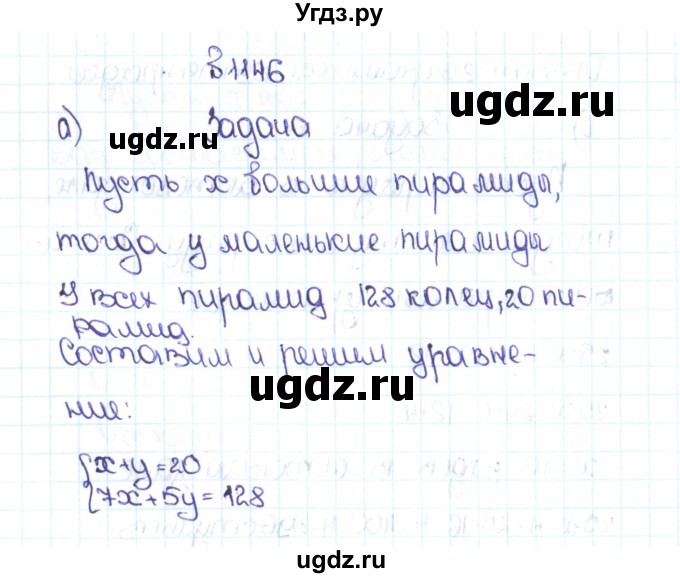 Угдз.ру
В1146
ugdz.ru
а) Задача
ugdz.ru
Пусть х большие пирамиды,
тогда у маленькие пирамиды
У всех пирамид 128 колец, 20 пи-
рамид.
Составим и решим уравне-
ugdz.ru
ние:
х+у=20
7х+5у=128
ugdz.ru
ugdz.ru